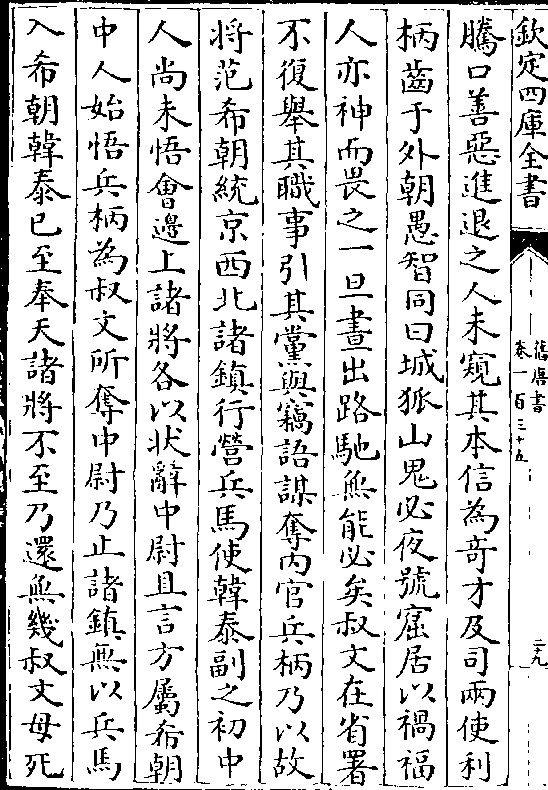 欽定四庫全書
舊唐書
卷一百三十五
二十九
騰口善惡進退之人未窺其本信為奇才及司兩使利
柄齒于外朝愚智同曰城狐山鬼必夜號窟居以禍福
人亦神而畏之一旦晝出路馳無能必矣叔文在省署
不復舉其職事引其黨與竊語謀奪内官兵柄乃以故
将范希朝統京西北諸鎮行營兵馬使韓泰副之初中
人尚未悟會邊上諸將各以状辭中尉且言方屬希朝
中人始悟兵柄為叔文所奪中尉乃止諸鎮無以兵馬
入希朝韓泰已至奉天諸將不至乃還無幾叔文母死